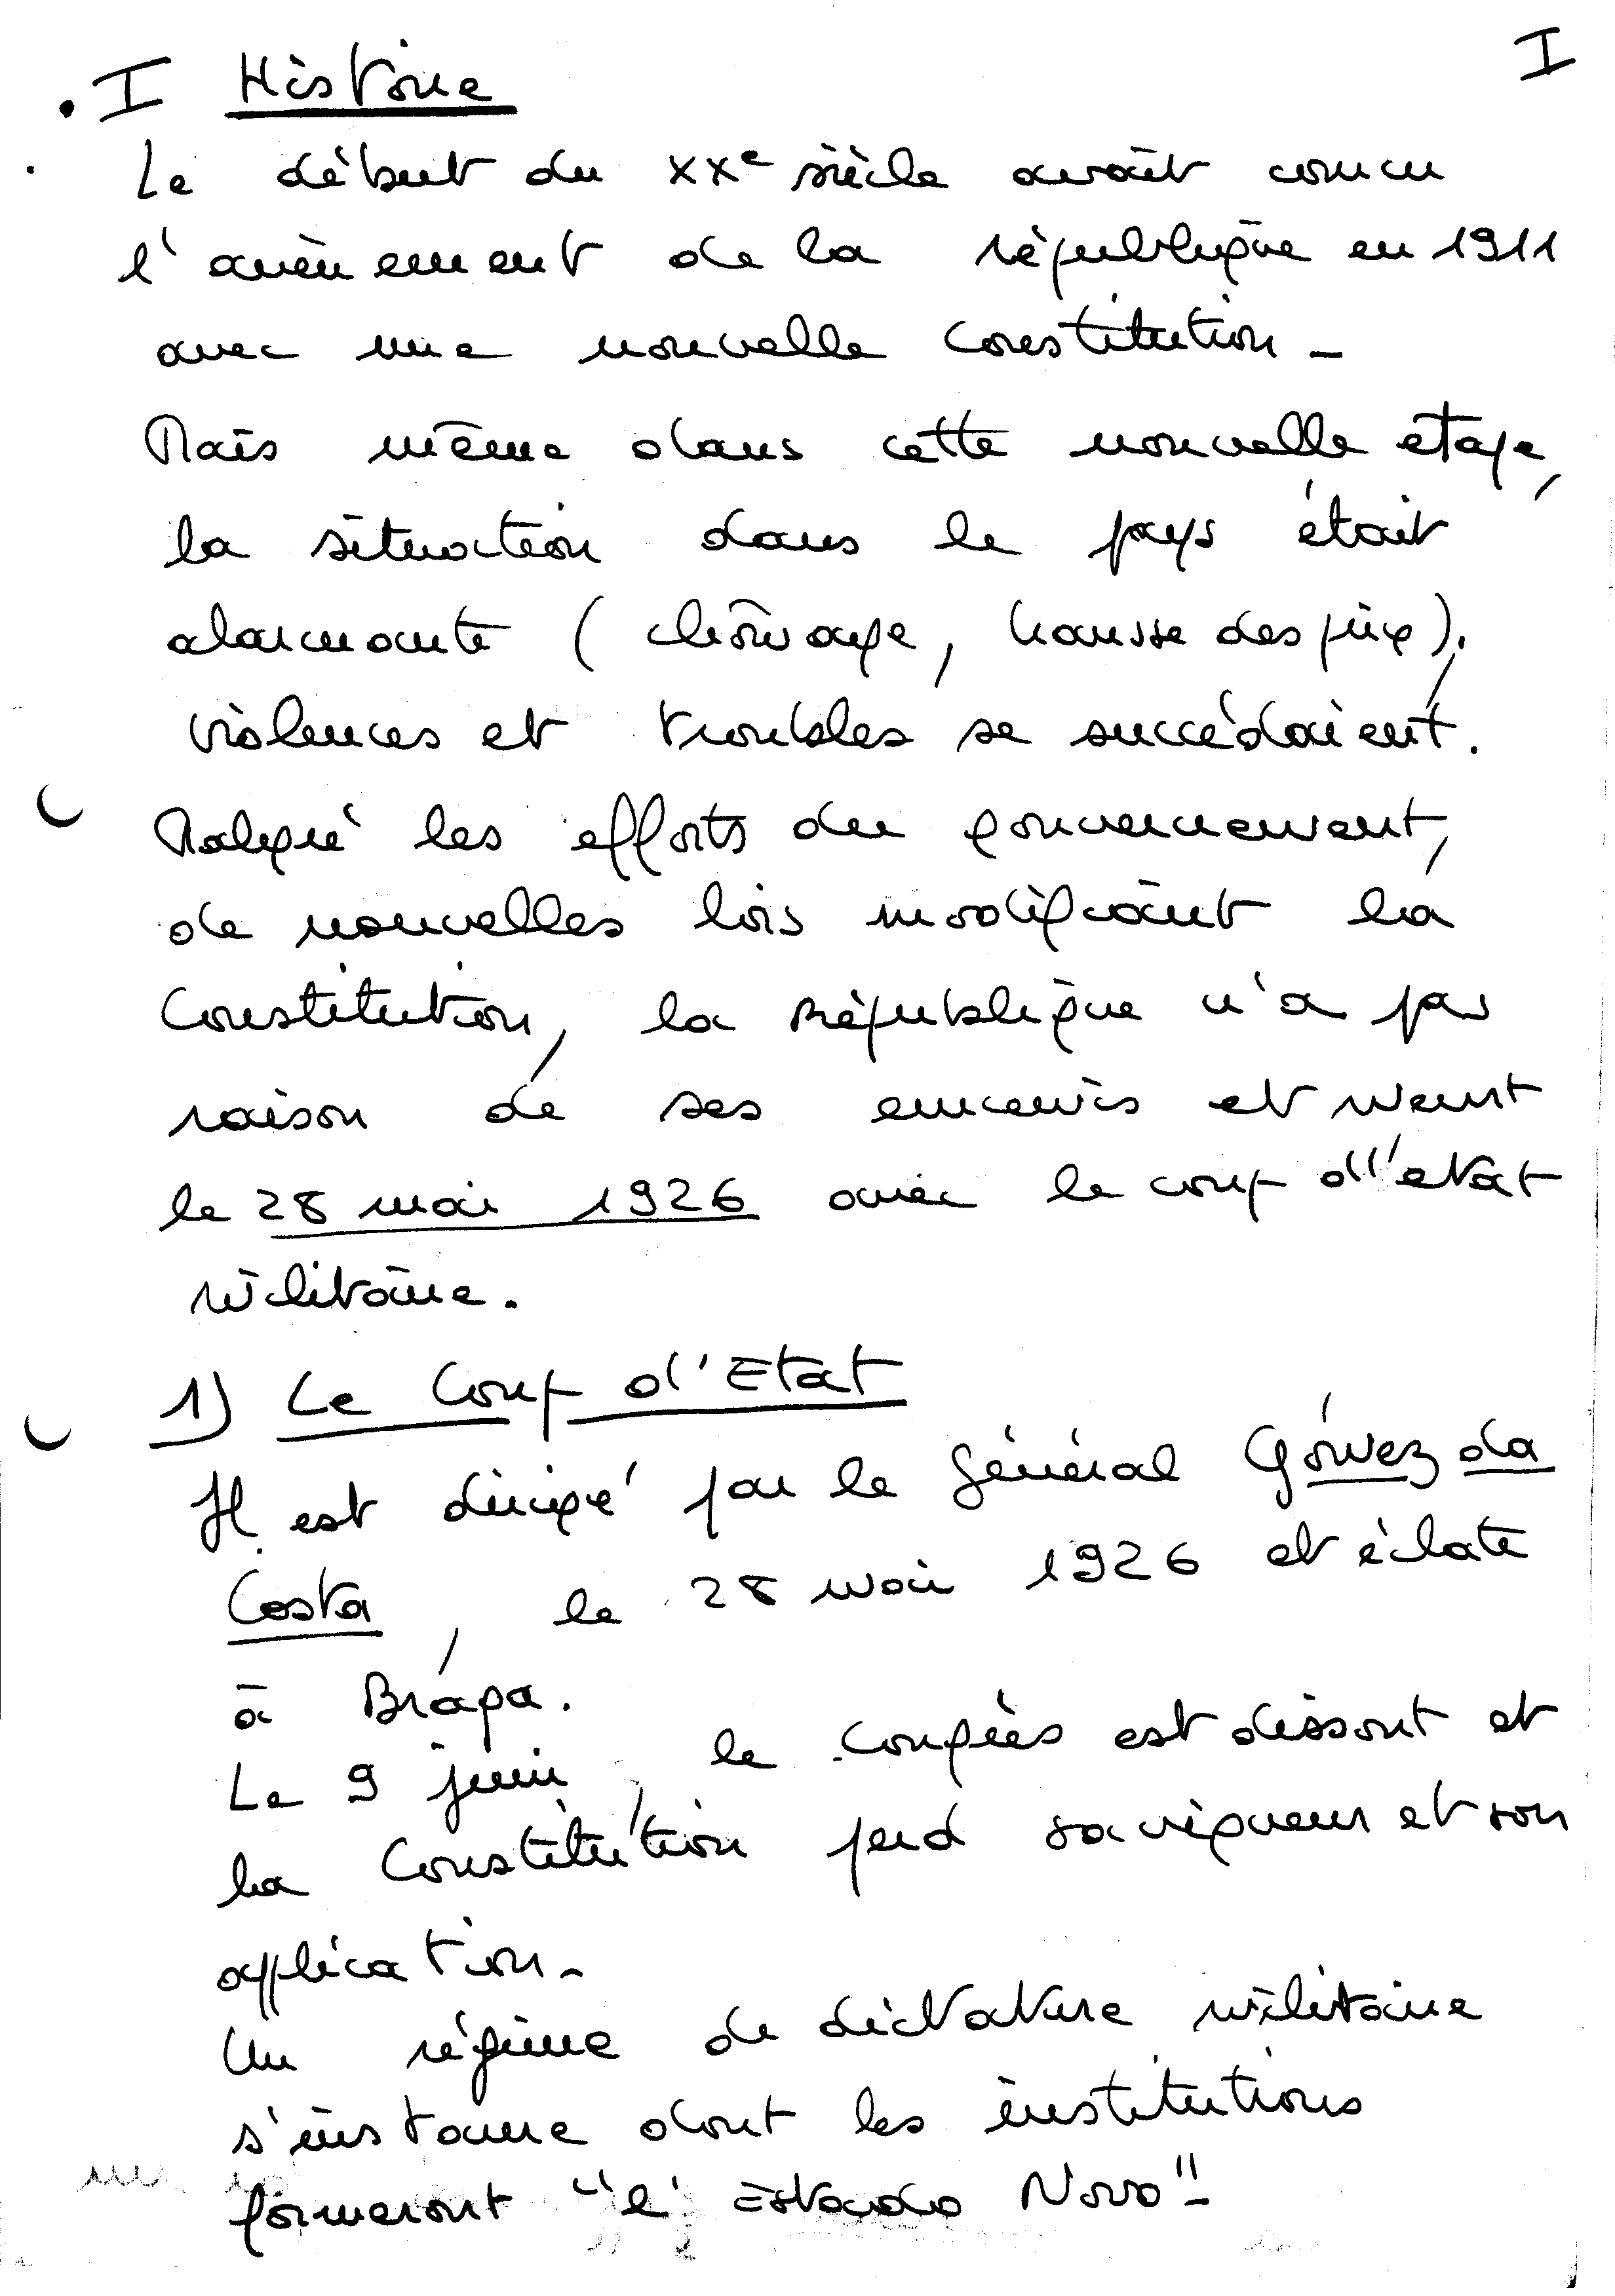 I
. I Histoire
Le début du XXe siècle avait connu
l'avènement de la république en 1911
avec une nouvelle Constitution -
Mais même dans cette nouvelle etape,
la situation dans le pays était
alarmante (chômage, hausse des prix).
Violences et troubles se succédaient.
Malgré les efforts du gouvernement,
de nouvelles lois modifiant la
Constitution, la République n'a pas
raison de ses ennemis et meurt
le 28 mai 1926 avec le coup d'etat
militaire.
1) Le Coup d'Etat
Il est dirigé par le Général Gómez da
Costa, le 28 mai 1926 et éclate
à Braga.
Le 9 juin, le Congrès est dissout et
la Constitution perd sa vigueur et son
application -
Un régime de dictature militaire
s'instaure dont les institutions
formeront "l'Estado Novo" -